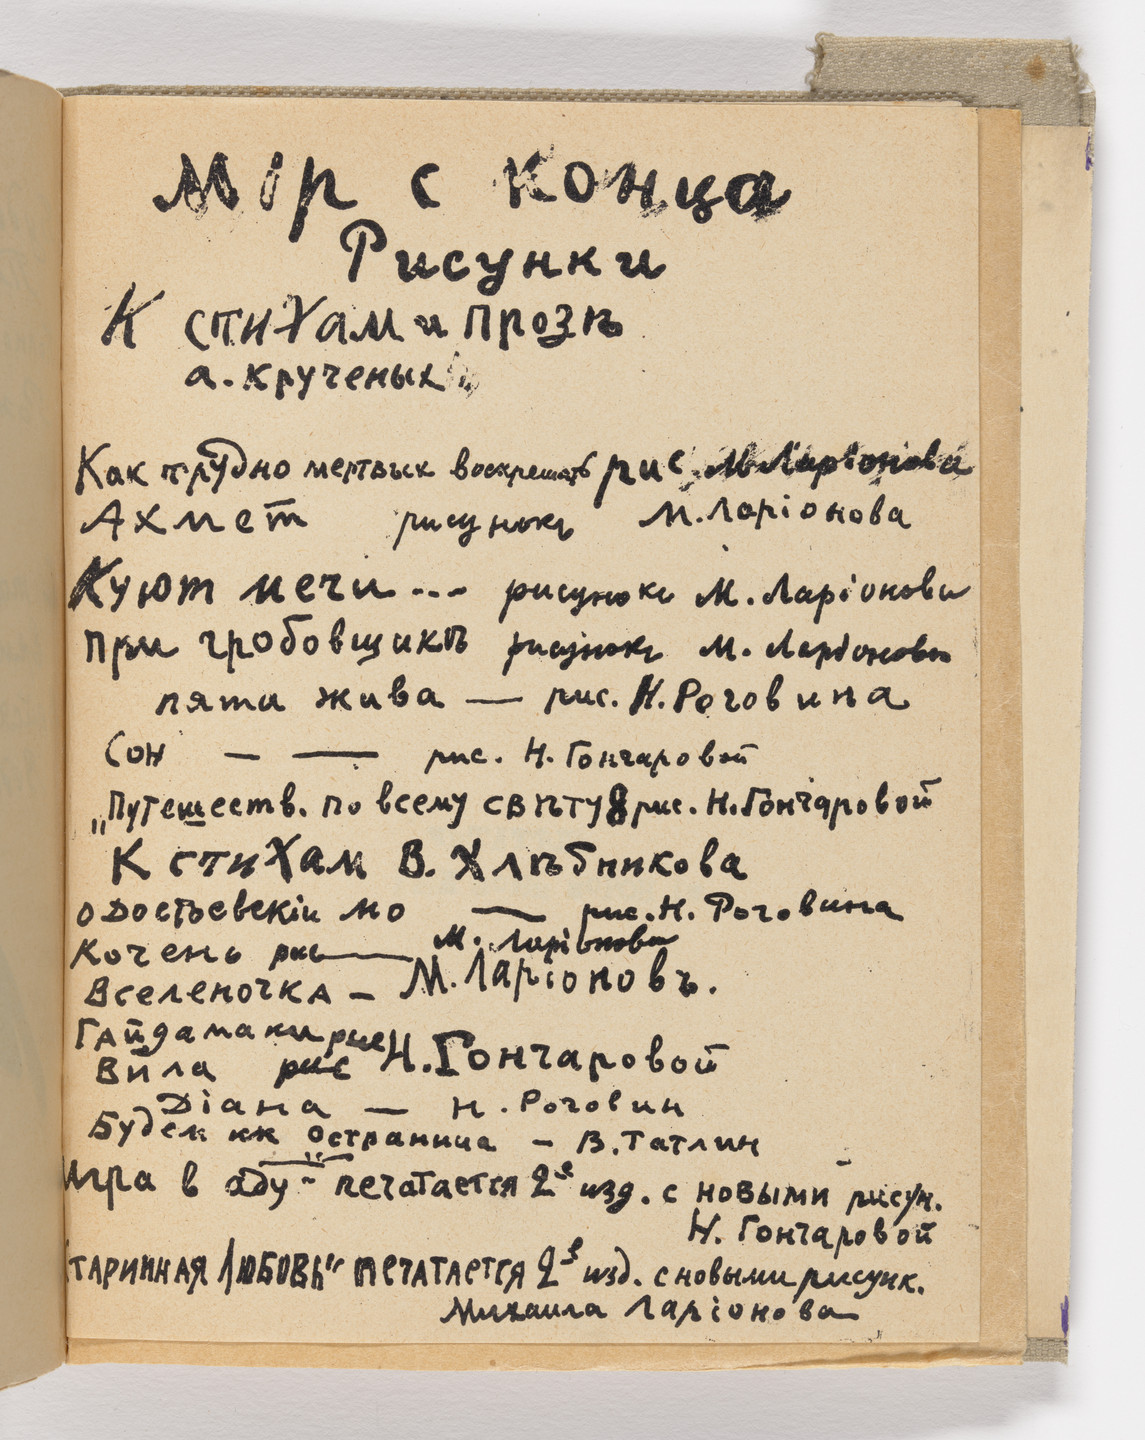 Мір с конца
Рисунки
К стихам и прозѣ
А. Крученых
Как трудно мертвых воскрешать рис. М. Ларіонова
Ахмет рисунокъ М. Ларіонова
Куют мечи... рисунокъ М. Ларіонова
При гробовщикѣ рисунокъ М. Ларіонова
пята жива — рис. Н. Роговина
Сон — — рис. Н. Гончаровой
„Путешеств. по всему свѣту 8 рис. Н. Гончаровой
К стихам В. Хлѣбникова
О Достоевскій мо — рис. Н. Роговина
Кочень рис — М. Ларіонова
Вселеночка — М. Ларіоновъ.
Гайдамаки рис
Вила рис Н. Гончаровой
Діана — Н. Роговин
Будем кк Остраница — В. Татлин
Игра в аду" печатается 2е изд. с новыми рисун.
Н. Гончаровой
таринная любовь" печатается 2е изд. с новыми рисунк.
Михаила Ларіонова